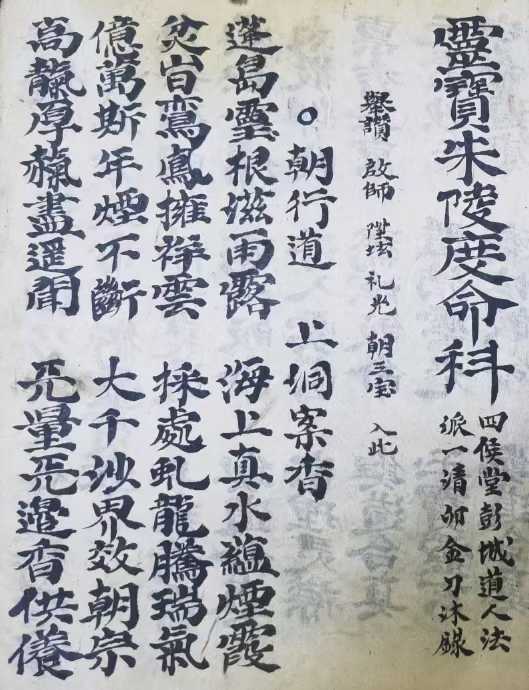 靈寶朱陵度命科
四侯堂彭城道人法
派一清卯金刀沐錄
舉讚 啟師 陞坛 礼光 朝三宝 入此
○ 朝行道 上洞案香
蓬島靈根滋雨露 海上真水蘊煙霞
炃旹鸞鳳擁祥雲 採處虬龍騰瑞氣
億萬斯年煙不斷 大千沙界效朝宗
高靝厚盡遥聞 旡量旡邊香供養